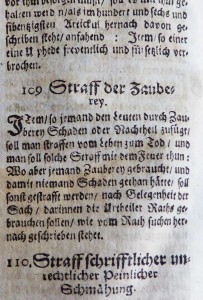 haben werd n/als im hundert und sechs und
sibentzigsten Artickul hernach davon ge-
schriben steht/ anfahend : Item/so einer
eine Uphede frevenlich und fürsetzlich ver-
brochen.
109 Straff der Zaube-
rey.
ITem/so jemand den leuten durch Zau-
berey Schaden oder Nachtheil zufügt/
soll man straffen vom leben zum Tod / und
man soll solche Straf mit dem Feuer thun :
Wo aber jemand Zauberey gebraucht/ und
damit niemand Schaden gethan hätte/ soll
sonst gestrafft werden/ nach Gelegenheit der
Sach/ darinnen die Urtheiler Raths ge-
brauchen sollen/ wie vom Rath suchen her-
nach geschrieben stehet.
110. Straff schrifftlicher un-
rechtlicher Peinlicher
Schmähung.